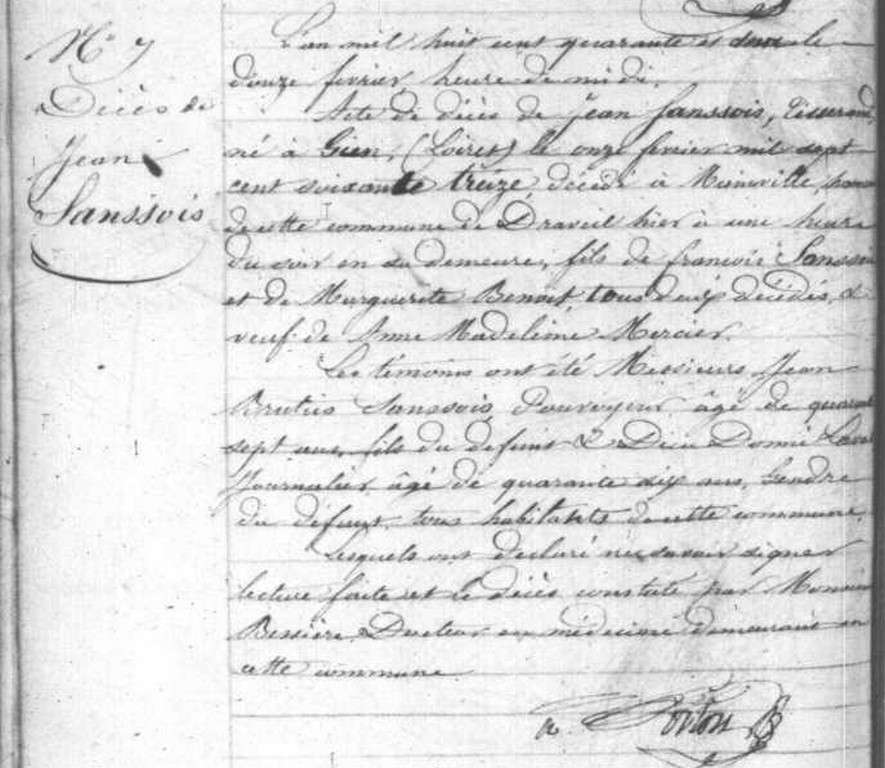 N° 7
Décès de
Jean
Sanssois
L'an mil huit cent quarante et deux le
douze fevrier heure de midi.
Acte de décès de Jean Sanssois, Tisserand,
né à Gien, (Loiret) le onze fevrier mil sept
cent soixante treize, décédé à Mainville
de cette commune de Draveil hier à une heure
du soir en sa demeure, fils de francois Sanssois
et de Marguerite Benoist tous deux décédés, &
veuf de Anne Madeleine Mercier.
Les témoins ont été Messieurs Jean
Brutus Sanssois, Pourvoyeur âgé de quarante
sept ans, fils du defunt & Dieu Donné
Journalier âgé de quarante six ans, Gendre
du défunt, tous habitants de cette commune.
Lesquels ont declaré ne savoir signer
lecture faite et le décès constaté par Monsieur
Bessière Docteur en médecine demeurant en
cette commune.